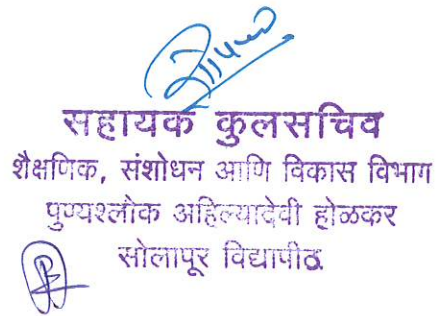 सहायक कुलसचिव
शैक्षणिक, संशोधन आणि विकास विभाग
पुण्यश्लोक अहिल्यादेवी होळकर
सोलापूर विद्यापीठ.